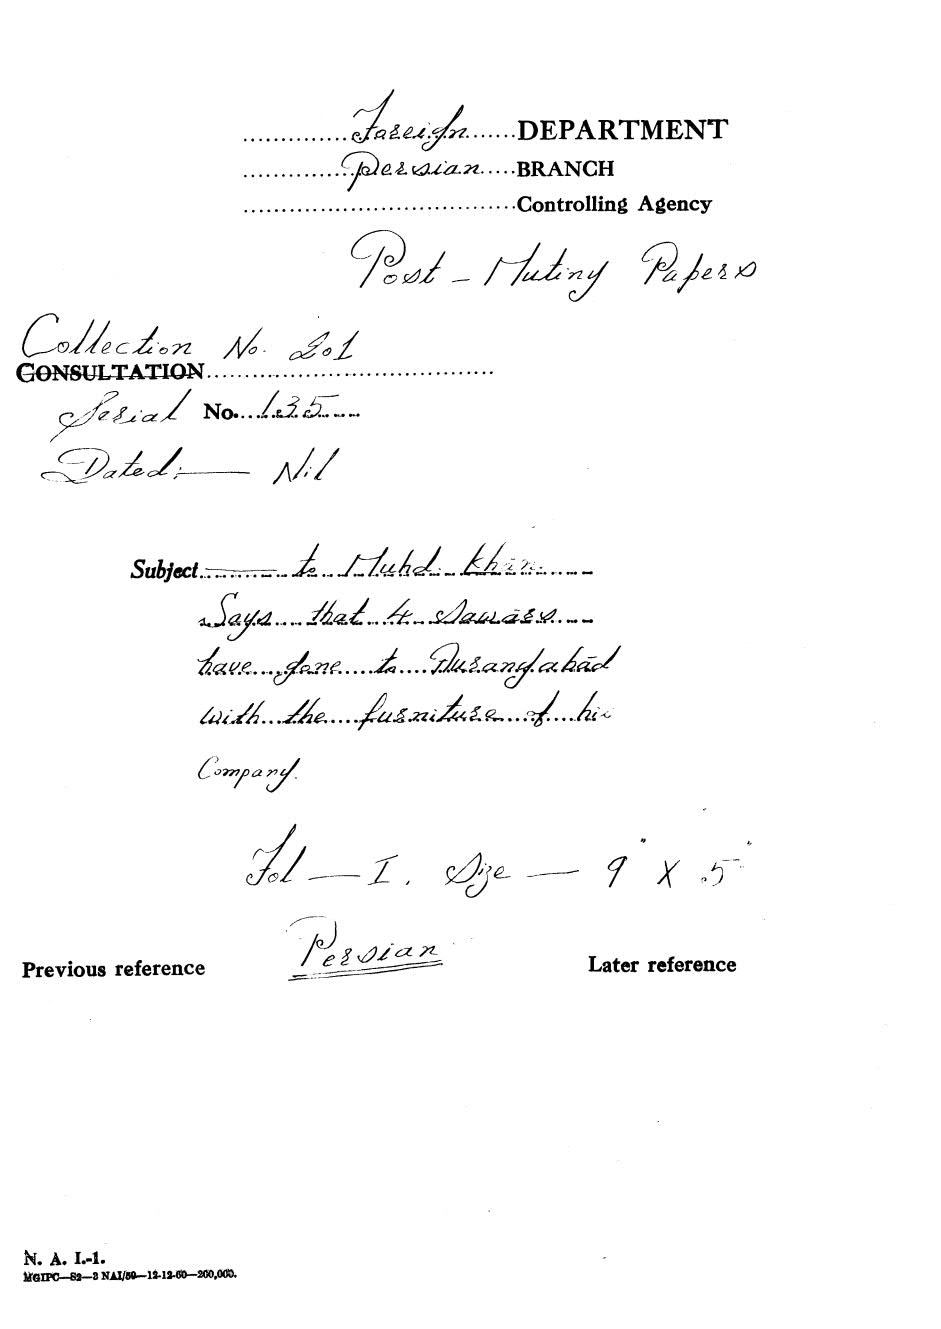 Foreign DEPARTMENT
Persian BRANCH
Controlling Agency
Post - Mutiny Papers
Collection No. 201
CONSULTATION
Serial No. 135
Dated:— Nil
Subject — to Muhd. Khān
Says that 4 Sawārs
have gone to Aurangabād
with the furniture of his
Company.
Fol — I. Size — 9" X 5"
Persian
Previous reference Later reference
N. A. I.-1.
MGIPC—S2—3 NAI/59—12-12-60—200,000.